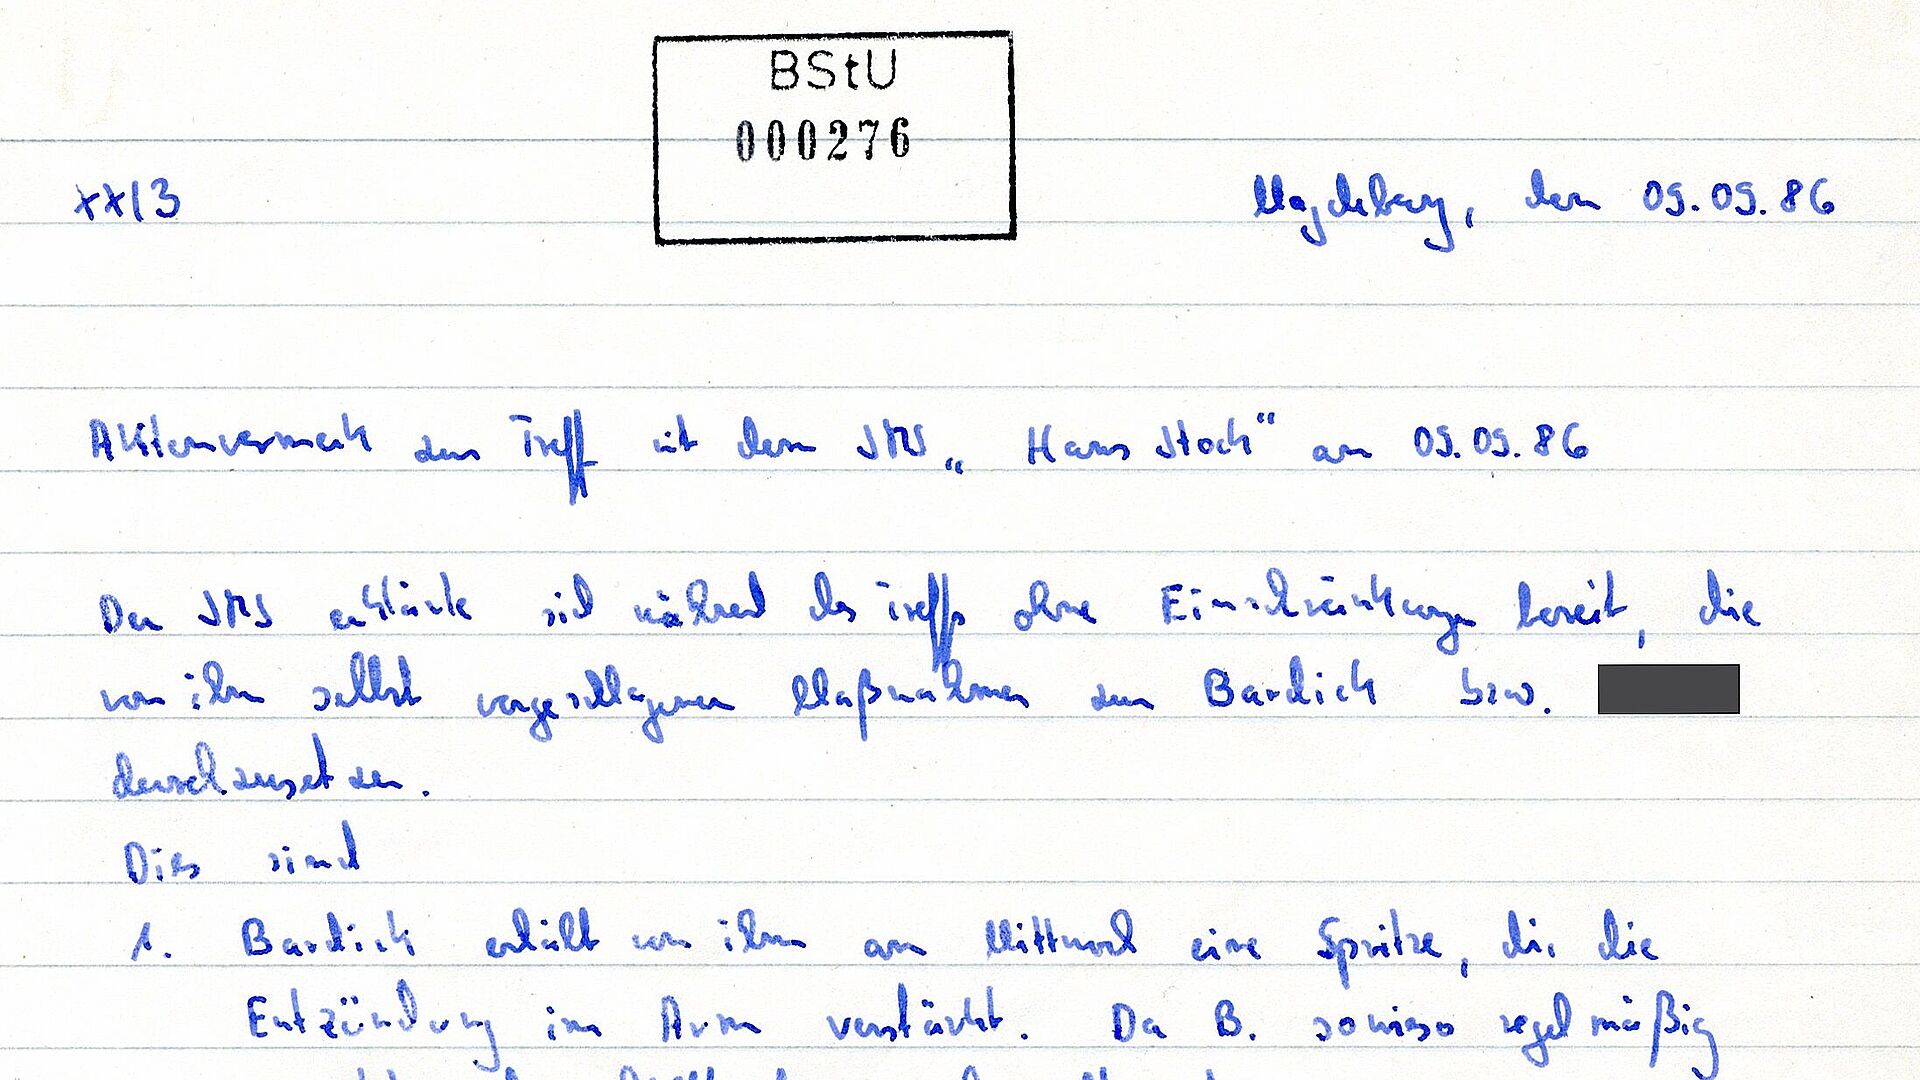 BStU
000276
XX/3 Magdeburg, den 09.09.86
Aktenvermerk zum Treff mit dem IMS „Hans Stock“ am 09.09.86
Der IMS erklärte sich während des Treffs ohne Einschränkungen bereit, die
von ihm selbst vorgeschlagenen Maßnahmen zum Bardick bzw.
durchzusetzen.
Dies sind
1. Bardick erhält von ihm am Mittwoch eine Spritze, die die
Entzündung im Arm verstärkt. Da B. sowieso regelmäßig